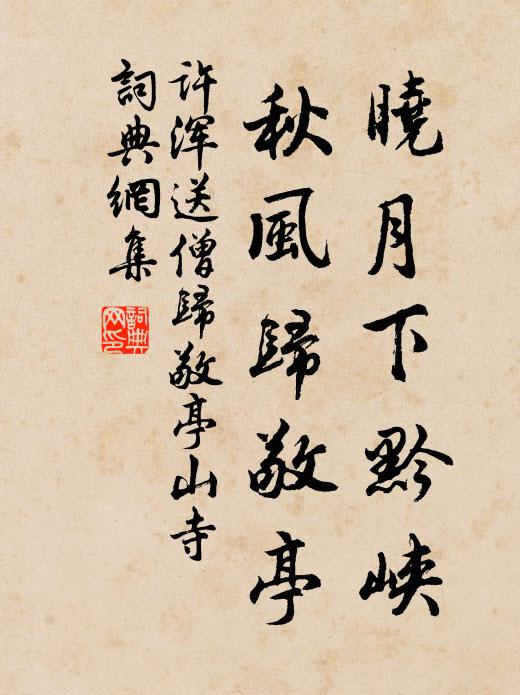 曉月下黔峽
秋風歸敬亭
許浑送僧歸敬亭山寺
詞典網集
詞典
网印